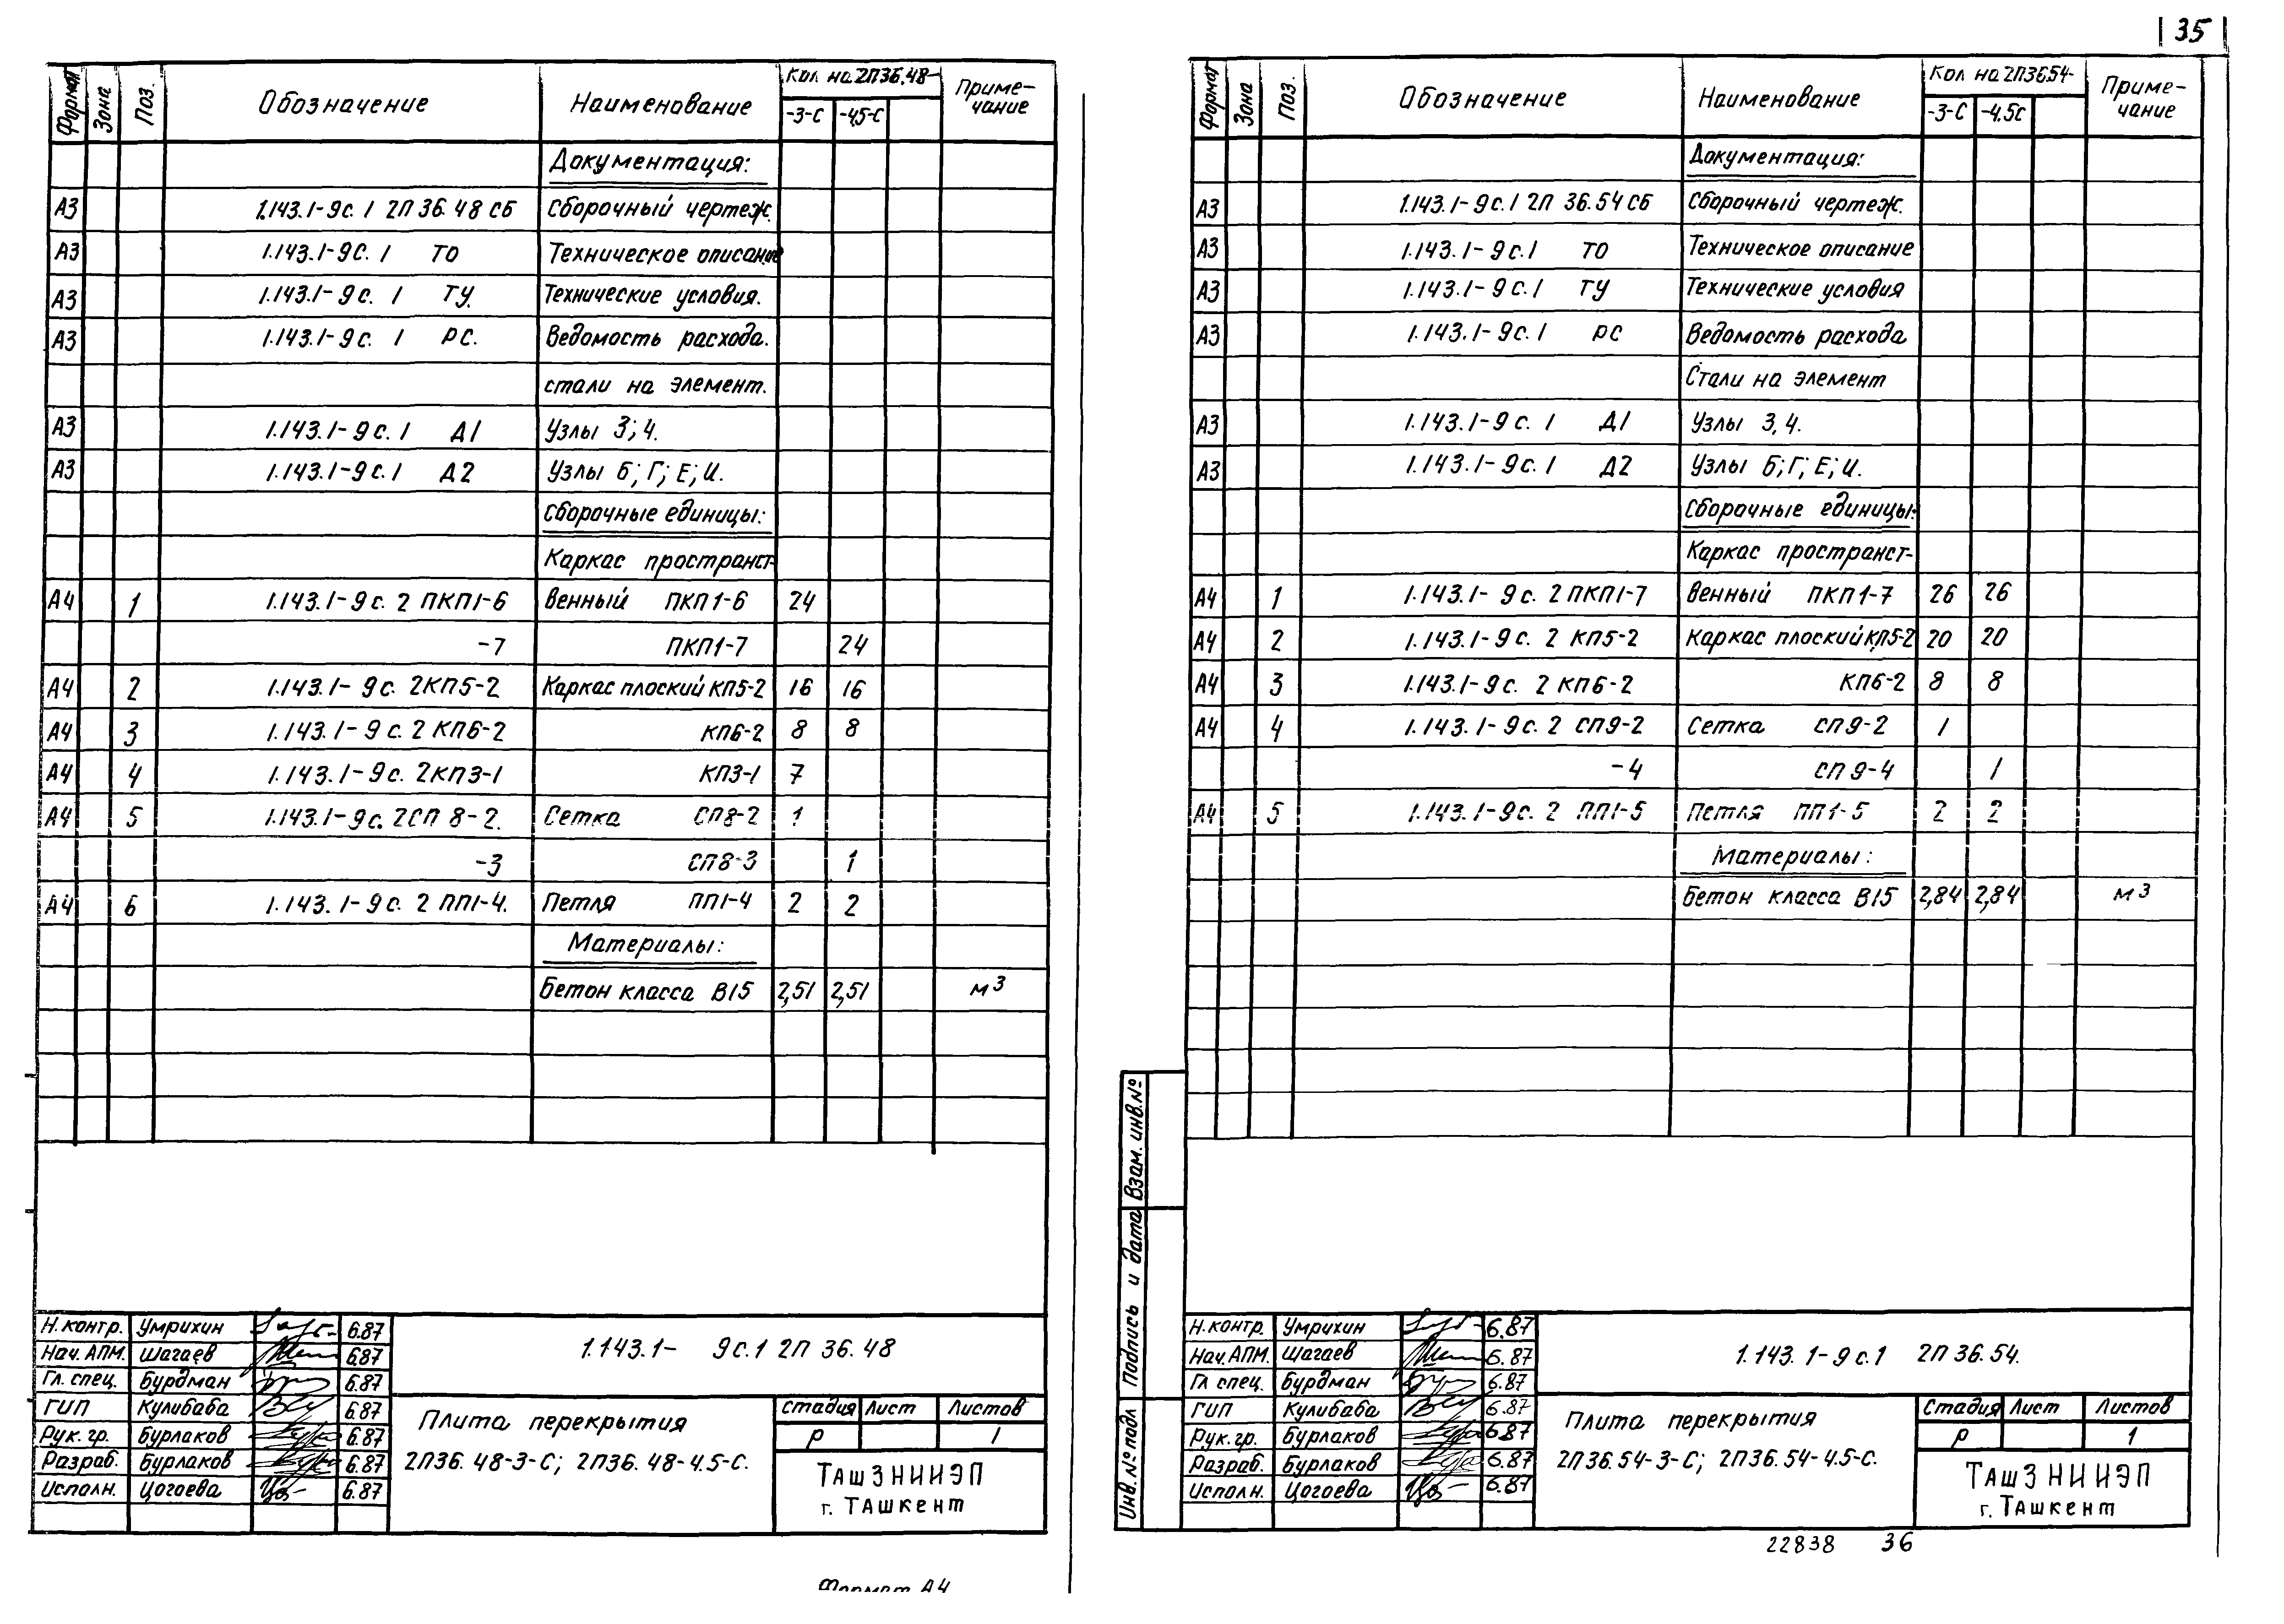 35
Формат Зона Поз. Обозначение Наименование Кол на 2П36.48- Приме-чание
-3-С -4,5-С
Документация:
А3 1.143.1-9с.1 2П 36.48 СБ Сборочный чертеж.
А3 1.143.1-9с.1 ТО Техническое описание
А3 1.143.1-9с. 1 ТУ Технические условия.
А3 1.143.1-9с. 1 РС. Ведомость расхода.
стали на элемент.
А3 1.143.1-9с.1 Д1 Узлы 3; 4.
А3 1.143.1-9с.1 Д2 Узлы Б; Г; Е; И.
Сборочные единицы:
Каркас пространст-
А4 1 1.143.1-9с. 2 ПКП1-6 венный ПКП1-6 24
-7 ПКП1-7 24
А4 2 1.143.1-9с. 2КП5-2 Каркас плоский КП5-2 16 16
А4 3 1.143.1-9с. 2 КП6-2 КП6-2 8 8
А4 4 1.143.1-9с. 2КП3-1 КП3-1 7
А4 5 1.143.1-9с. 2СП 8-2. Сетка СП8-2 1
-3 СП8-3 1
А4 6 1.143.1-9с. 2 ПП1-4. Петля ПП1-4 2 2
Материалы:
Бетон класса В15 2,51 2,51 м3
Н.контр. Умрихин 6.87
Нач.АПМ. Шагаев 6.87
Гл. спец. Бурдман 6.87
ГИП Кулибаба 6.87
Рук. гр. Бурлаков 6.87
Разраб. Бурлаков 6.87
Исполн. Цогоева 6.87
1.143.1- 9с.1 2П 36.48
Плита перекрытия
2П36.48-3-С; 2П36.48-4.5-С.
Стадия Лист Листов
Р 1
ТашЗНИИЭП
г. Ташкент
Формат А4
Формат Зона Поз. Обозначение Наименование Кол на 2П36.54- Приме-чание
-3-С -4.5С
Документация:
А3 1.143.1-9с.1 2П 36.54 СБ Сборочный чертеж.
А3 1.143.1-9с.1 ТО Техническое описание
А3 1.143.1-9с.1 ТУ Технические условия
А3 1.143.1-9с.1 РС Ведомость расхода
Стали на элемент
А3 1.143.1-9с. 1 Д1 Узлы 3, 4.
А3 1.143.1-9с.1 Д2 Узлы Б; Г; Е; И.
Сборочные единицы:
Каркас пространст-
А4 1 1.143.1-9с. 2 ПКП1-7 венный ПКП1-7 26 26
А4 2 1.143.1-9с. 2 КП5-2 Каркас плоский КП5-2 20 20
А4 3 1.143.1-9с. 2 КП6-2 КП6-2 8 8
А4 4 1.143.1-9с. 2 СП9-2 Сетка СП9-2 1
-4 СП 9-4 1
А4 5 1.143.1-9с. 2 ПП1-5 Петля ПП1-5 2 2
Материалы:
Бетон класса В15 2,84 2,84 м3
Инв.№ подл Подпись и дата Взам. инв.№
Н.контр. Умрихин 6.87
Нач.АПМ. Шагаев 6.87
Гл спец. Бурдман 6.87
ГИП Кулибаба 6.87
Рук. гр. Бурлаков 6.87
Разраб. Бурлаков 6.87
Исполн. Цогоева 6.87
1.143.1-9с.1 2П 36.54.
Плита перекрытия
2П36.54-3-С; 2П36.54-4.5-С.
Стадия Лист Листов
Р 1
ТашЗНИИЭП
г. Ташкент
22838 36